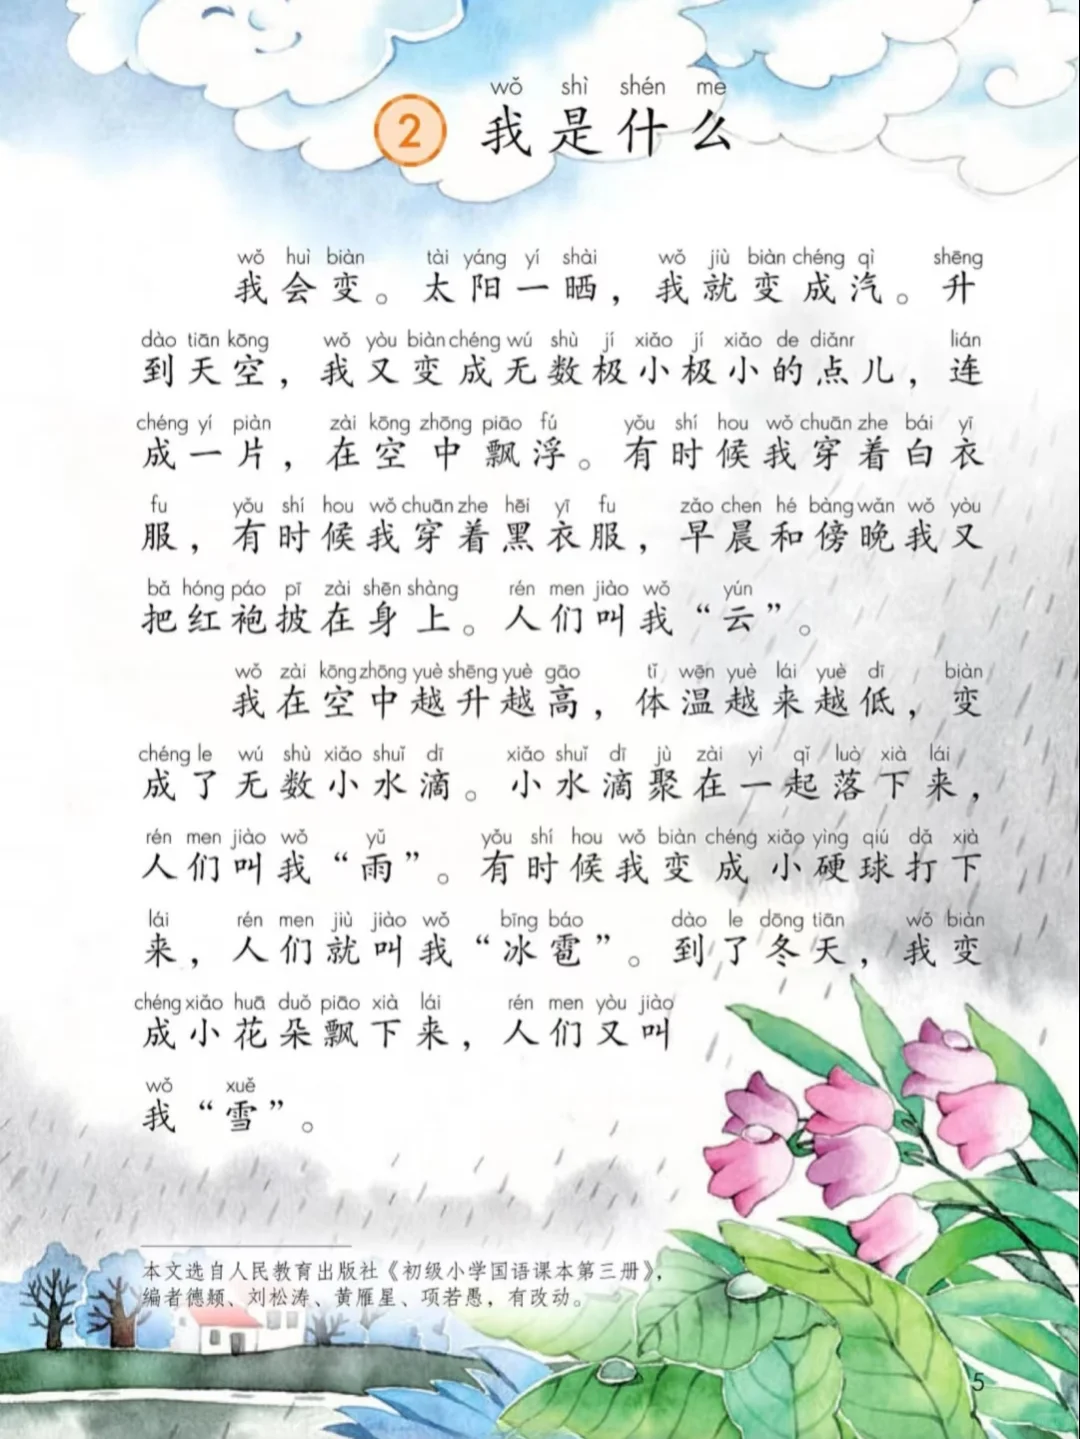 wǒ shì shén me
2 我是什么
wǒ huì biàn tài yáng yí shài wǒ jiù biàn chéng qì shēng
我会变。太阳一晒，我就变成汽。升
dào tiān kōng wǒ yòu biàn chéng wú shù jí xiǎo jí xiǎo de diǎnr lián
到天空，我又变成无数极小极小的点儿，连
chéng yí piàn zài kōng zhōng piāo fú yǒu shí hou wǒ chuān zhe bái yī
成一片，在空中飘浮。有时候我穿着白衣
fu yǒu shí hou wǒ chuān zhe hēi yī fu zǎo chen hé bàng wǎn wǒ yòu
服，有时候我穿着黑衣服，早晨和傍晚我又
bǎ hóng páo pī zài shēn shàng rén men jiào wǒ yún
把红袍披在身上。人们叫我“云”。
wǒ zài kōng zhōng yuè shēng yuè gāo tǐ wēn yuè lái yuè dī biàn
我在空中越升越高，体温越来越低，变
chéng le wú shù xiǎo shuǐ dī xiǎo shuǐ dī jù zài yì qǐ luò xià lái
成了无数小水滴。小水滴聚在一起落下来，
rén men jiào wǒ yǔ yǒu shí hou wǒ biàn chéng xiǎo yìng qiú dǎ xià
人们叫我“雨”。有时候我变成小硬球打下
lái rén men jiù jiào wǒ bīng báo dào le dōng tiān wǒ biàn
来，人们就叫我“冰雹”。到了冬天，我变
chéng xiǎo huā duǒ piāo xià lái rén men yòu jiào
成小花朵飘下来，人们又叫
wǒ xuě
我“雪”。
本文选自人民教育出版社《初级小学国语课本第三册》，
编者德颖、刘松涛、黄雁星、项若愚，有改动。
5